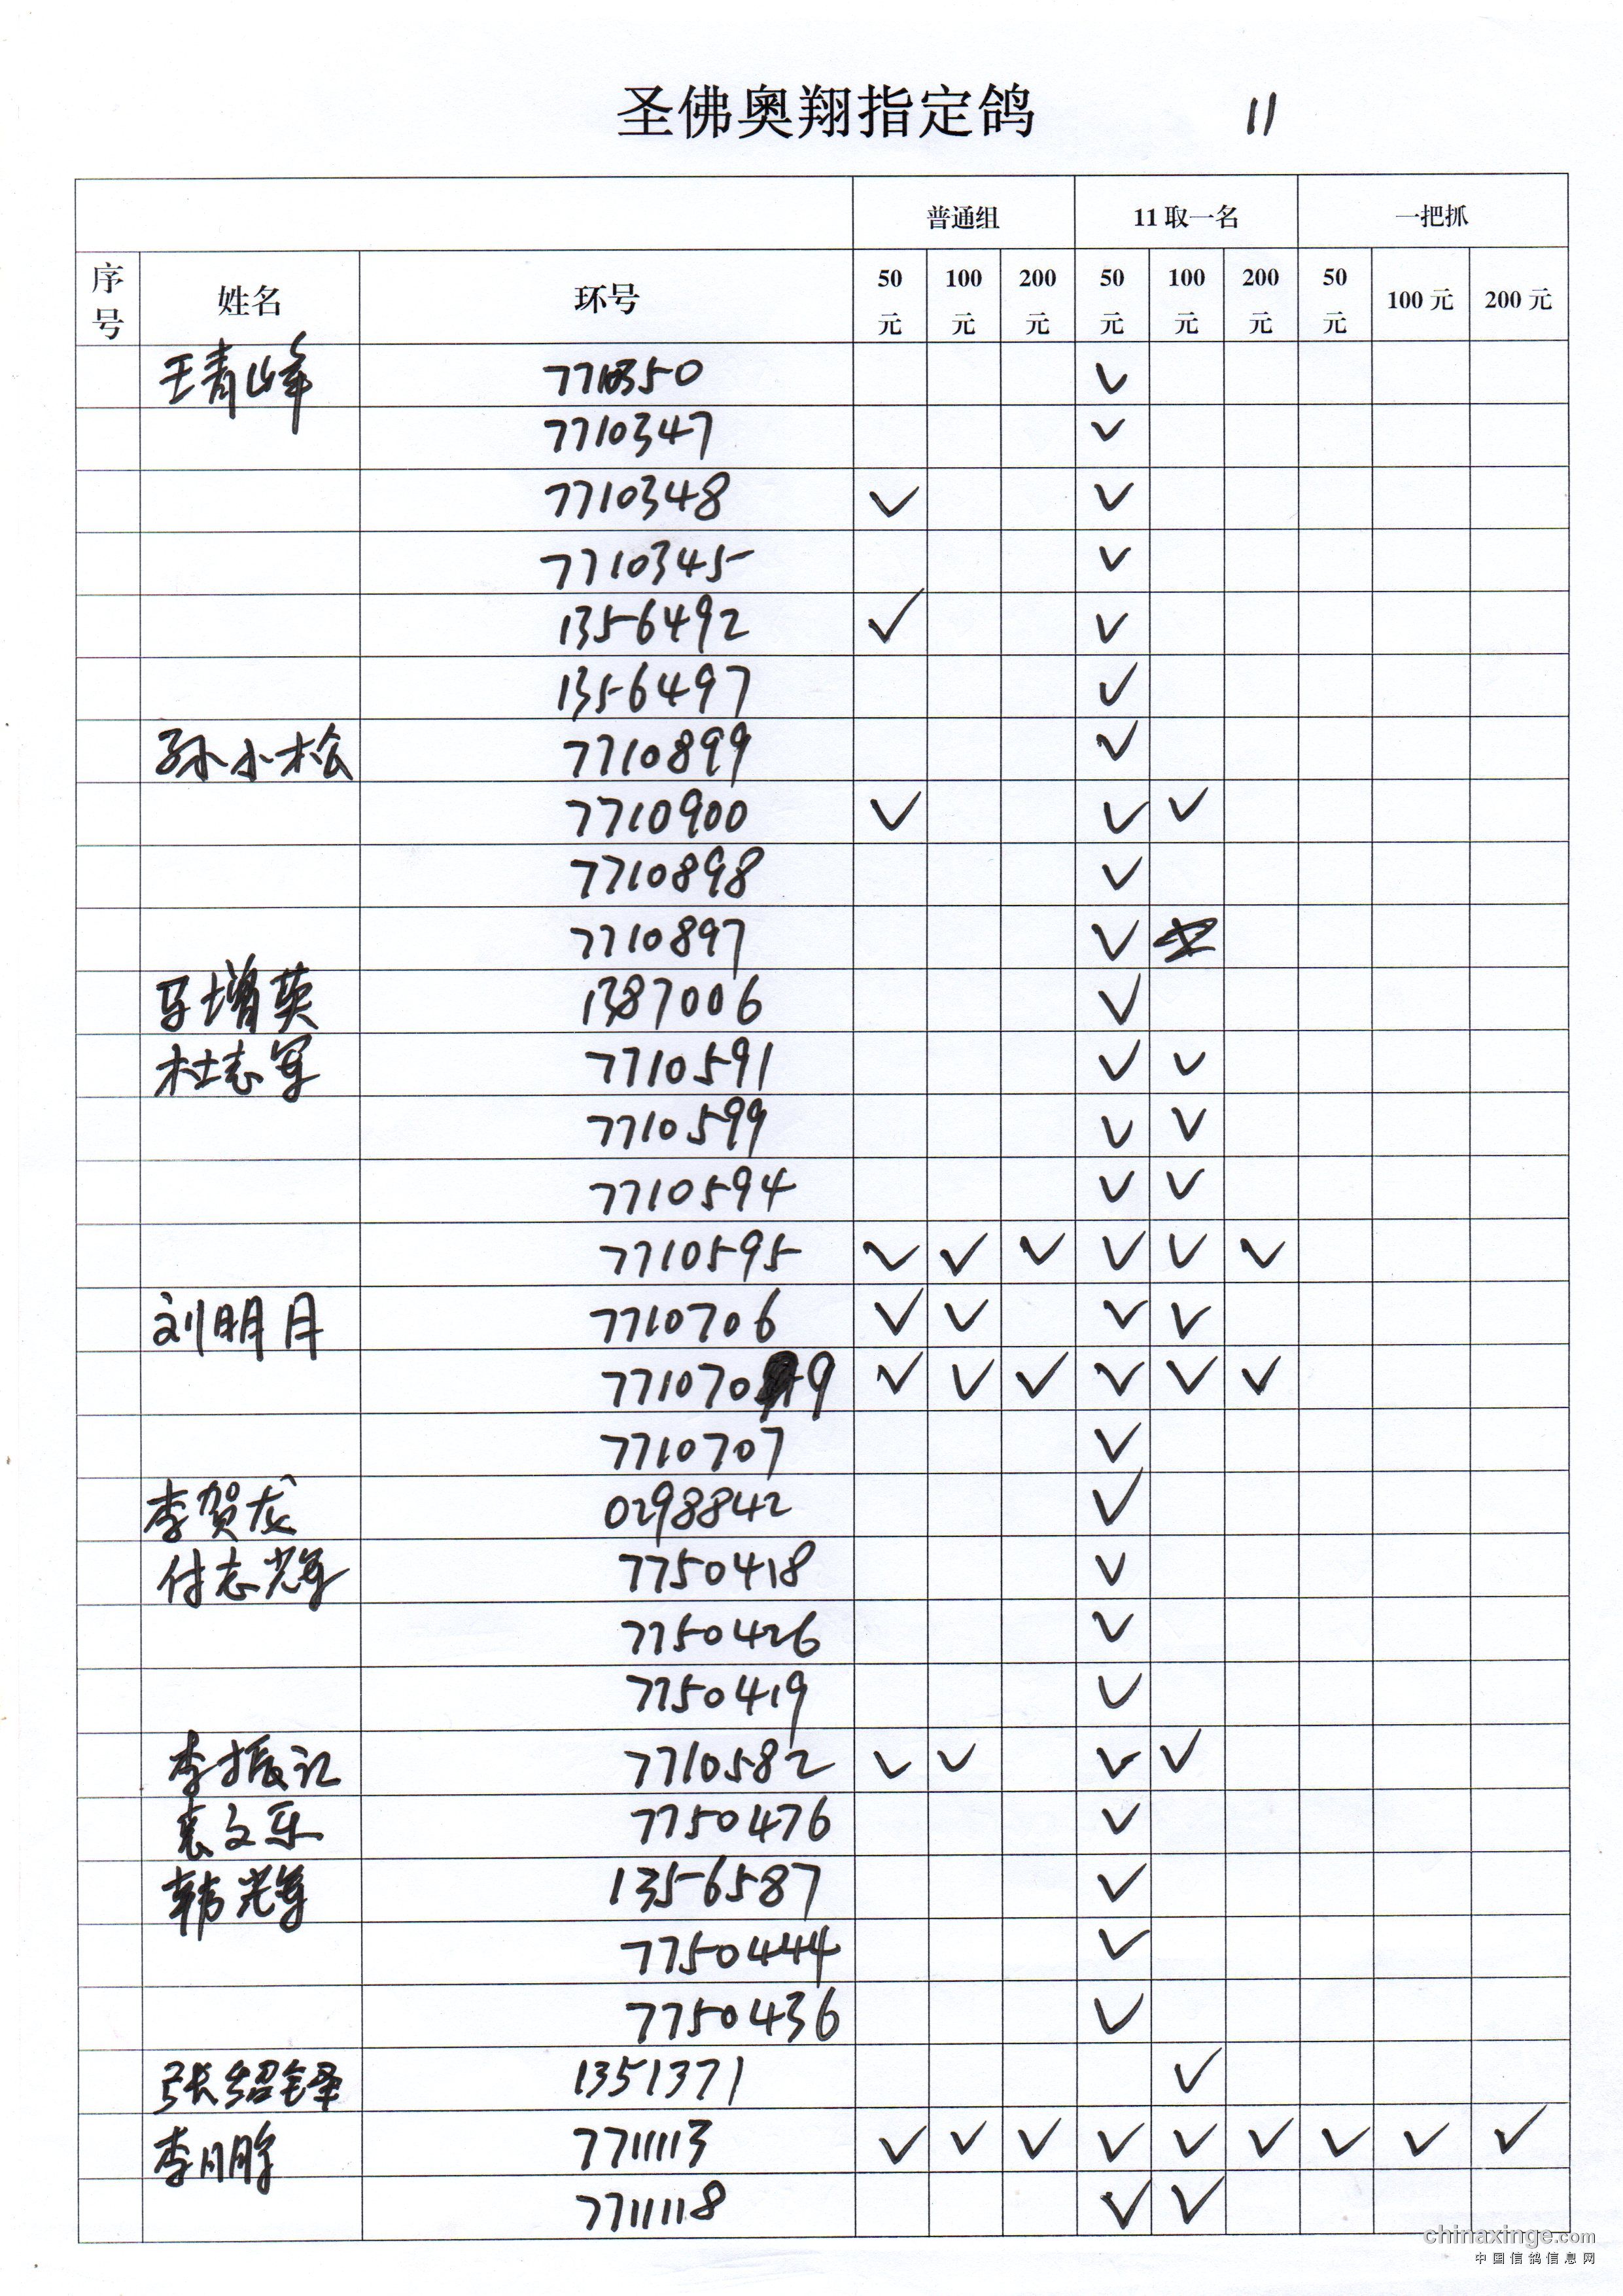 圣佛奥翔指定鸽 11
普通组 11取一名 一把抓
序号 姓名 环号 50元 100元 200元 50元 100元 200元 50元 100元 200元
王青峰 7710350 ✓
7710347 ✓
7710348 ✓ ✓
7710345 ✓
1356492 ✓ ✓
1356497 ✓
孙小松 7710899 ✓
7710900 ✓ ✓ ✓
7710898 ✓
7710897 ✓
马增英 1387006 ✓
杜志军 7710591 ✓ ✓
7710599 ✓ ✓
7710594 ✓ ✓
7710595 ✓ ✓ ✓ ✓ ✓ ✓
刘明月 7710706 ✓ ✓ ✓ ✓
7710709 ✓ ✓ ✓ ✓ ✓ ✓
7710707 ✓
李贺龙 0298842 ✓
付志辉 7750418 ✓
7750426 ✓
7750419 ✓
李振江 7710582 ✓ ✓ ✓ ✓
袁文乐 7750476 ✓
韩光辉 1356587 ✓
7750444 ✓
7750436 ✓
张绍铎 1351371 ✓
李 7711113 ✓ ✓ ✓ ✓ ✓ ✓ ✓ ✓ ✓
7711118 ✓ ✓
chinaxinge.com
中国信鸽信息网